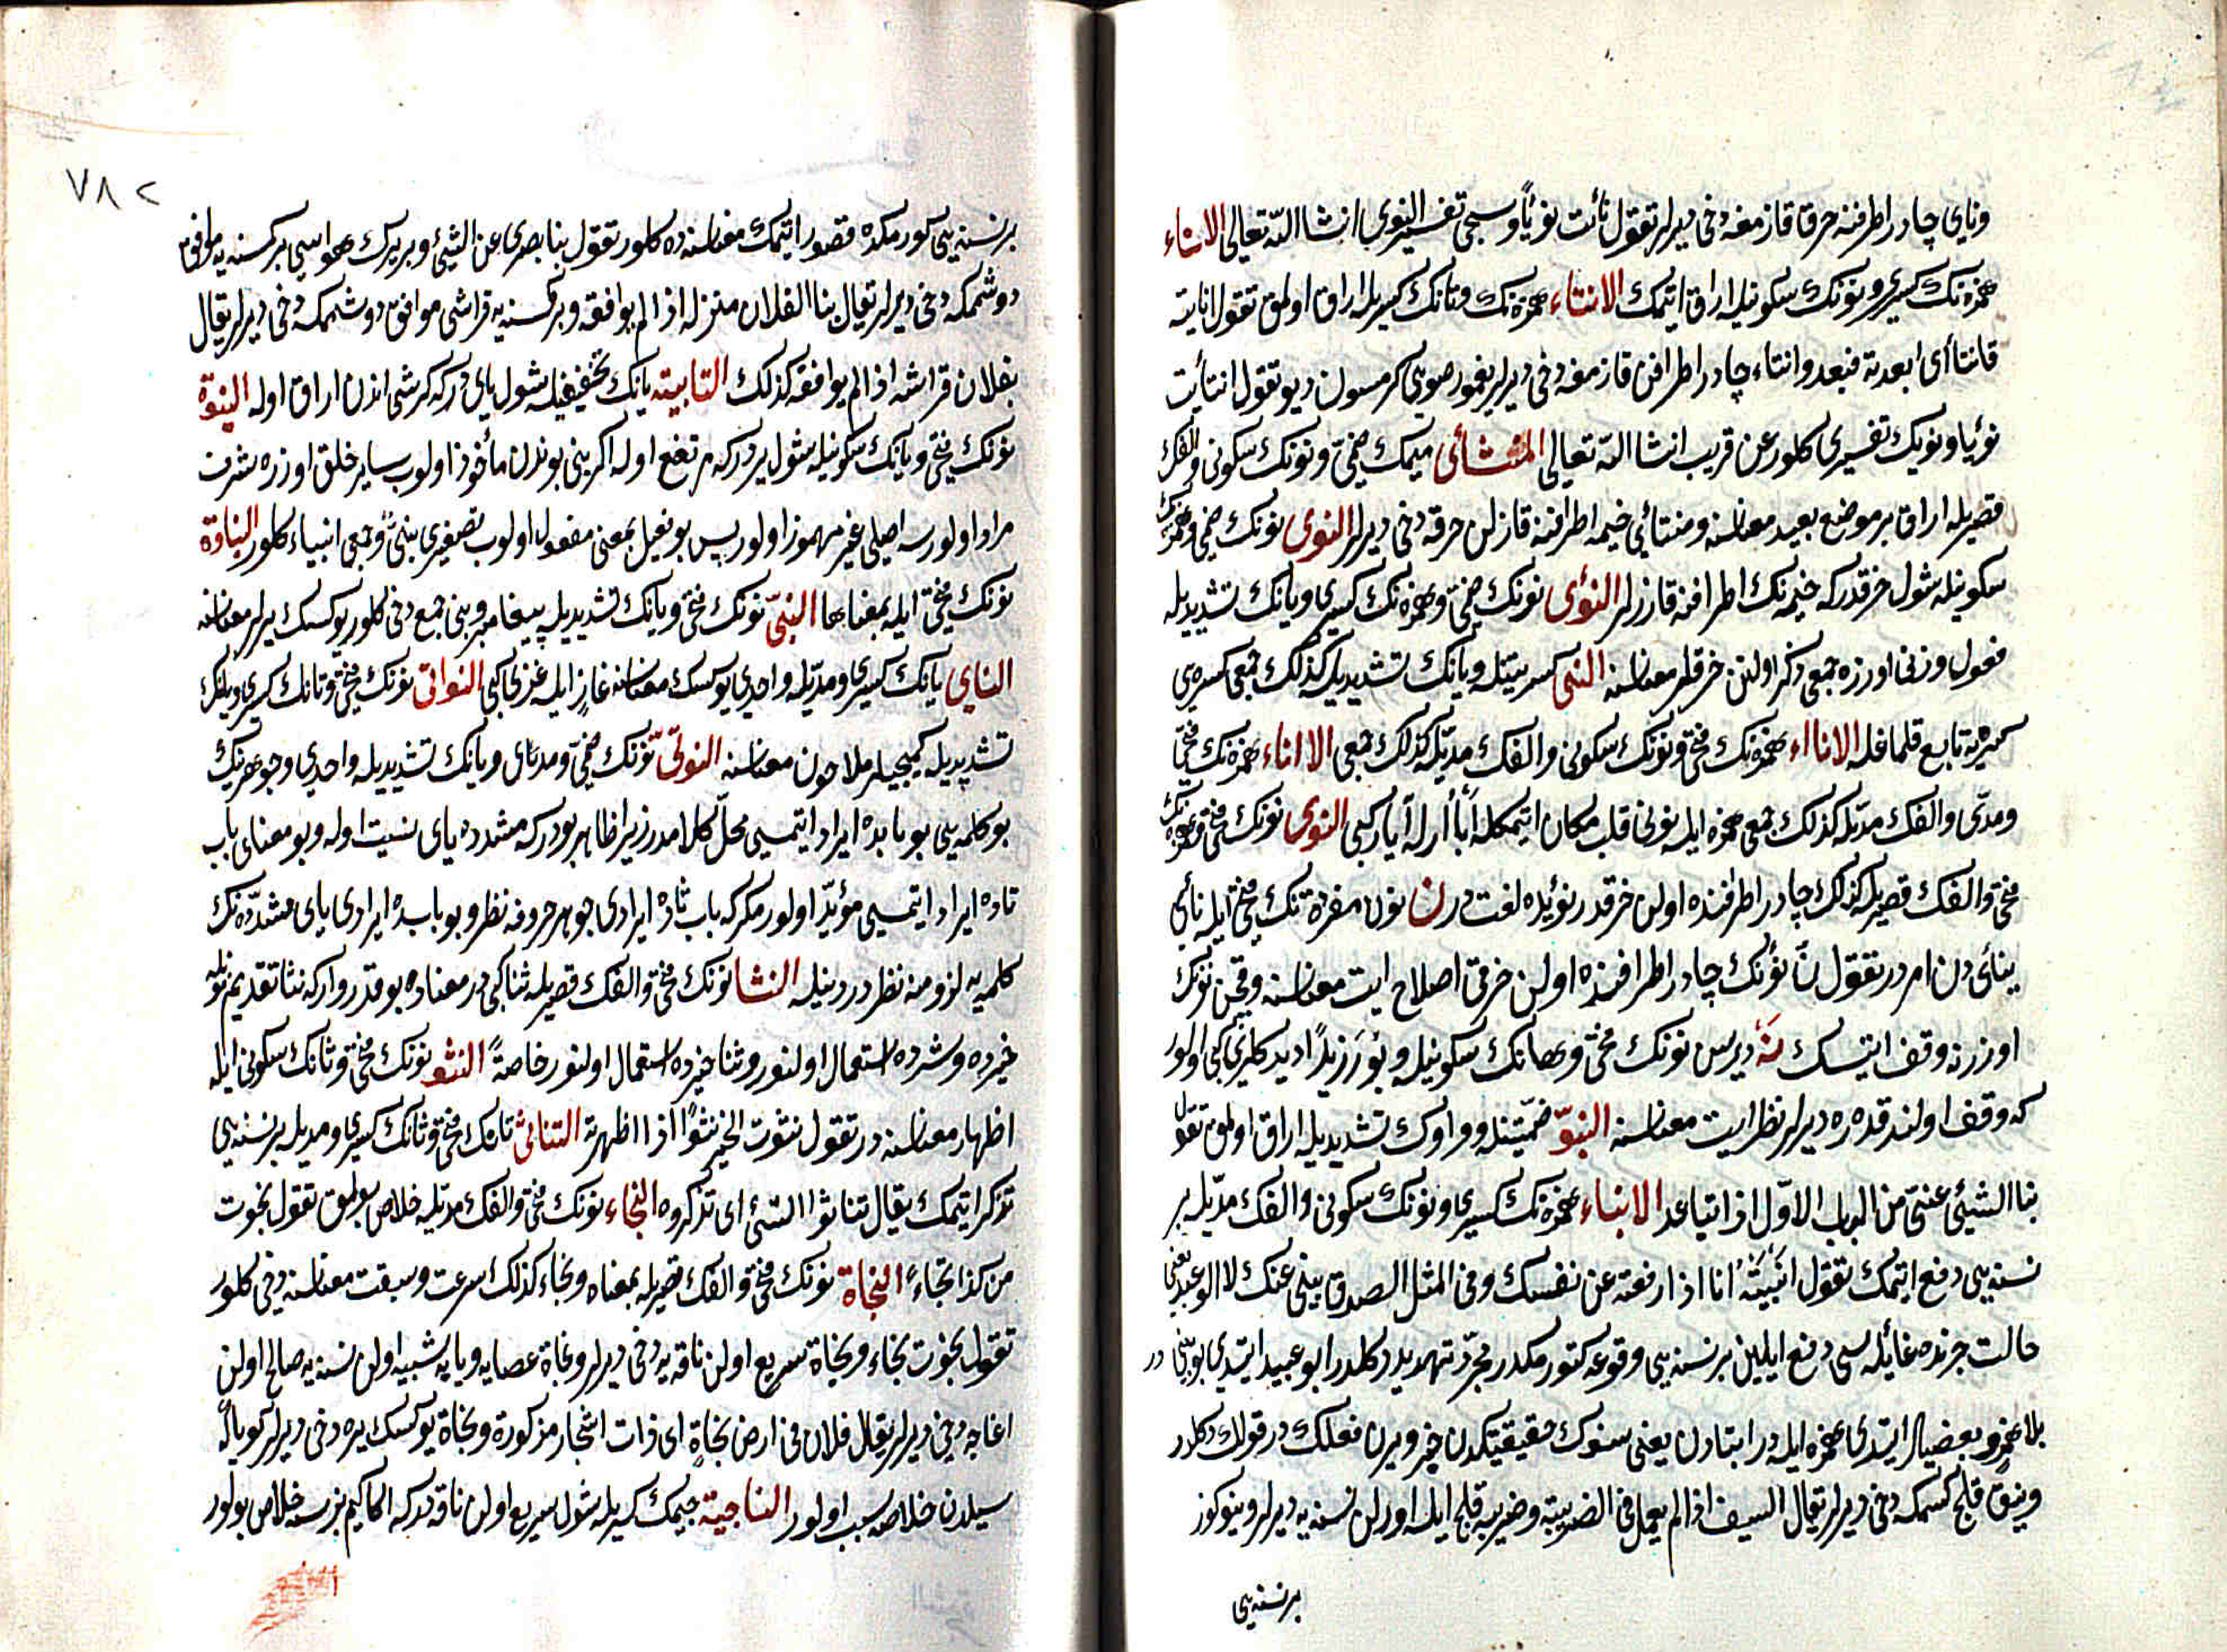 ونای چادر اطرافنه حرق قازمغه دخی دیرلر تقول نأیت نؤیاً وسیجی تفسیر النوی ان شاء اللّه تعالی الانآء
همزه‌نك كسری ونونك سكونیله اراق ایتمك الانتاء همزه‌نك وتانك كسریله اراق اولمق تقول انایته
فانتأی ای ابعدته فبعد وانتاء چادر اطرافن قازمغه دخی دیرلر یغمور صویی كرمسون دیو تقول انتأیت
نؤیا ونویك تفسیری كلور عن قریب انشا اللّه تعالی المنتأی میمك ضمّی ونونك سكونی والفك
قصریله اراق بر موضع بعید معناسنه ومنتأی خیمه اطرافنه قازلن حرقه دخی دیرلر النوی نونك ضمی وهمزه‌نك
سكونیله شول خرقدركه خیمه‌نك اطرافنه قازرلر النؤی نونك ضمّی وهمزه‌نك كسری ویانك تشدیدیله
فعول وزنی اوزره جمعی ذكر اولنن خرقلر معناسنه النئی كسرتینله ویانك تشدیدیله كذلك جمعی كسره‌یی
كسره‌یه تابع قلمغله الاناء همزه‌نك فتحی ونونك سكونی والفك مدّیله كذلك جمعی الااناء همزه‌نك فتحی
ومدّی والفك مدّیله كذلك جمعی همزه ایله نونی قلب مكان ایتمكله كبی النوی نونك فتحی وهمزه‌نك
فتحی والفك قصریله كذلك چادر اطرافنده اولن خرقدر نؤیده لغتدر ن نون مفرده‌نك فتحی ایله نأی
ینائی دن امردر تقول نَ نؤیك چادر اطرافنده اولن خرقی اصلاح ایت معناسنه وقچن نونك
اوزرنه وقف ایتسك نَهْ دیرسن نونك فتحی وهانك سكونیله كبی اولور
كه وقف اولندقده ره دیرلر نظر ایت معناسنه النبوّ ضمّتینله وواوك تشدیدیله اراق اولمق تقول
نبا الشیئی عنّی من الباب الاوّل اذا تباعد الانباء همزه‌نك كسری ونونك سكونی والفك مدّیله بر
نسنه‌یی دفع ایتمك تقول انبیته انا اذا دفعته عن نفسك وفی المثل الصدق ینبی عنك لا الوعید یعنی
حالت حربده غائله‌سی دفع ایلین بر نسنه‌یی وقوعه كتورمكدر مجرّد تهدید دكلدر ابو عبید ایتدی بو ینبی در
بلا همز وبعضیلر ایتدی همزه ایله در انبادن یعنی سنوك حقیقتكدن خبر ویرن فعلك در قولك دكلدر
ونبوّ قلج كسمكه دخی دیرلر یقال السیف اذا لم یعمل فی الضریبة وضریبه قلج ایله اورلن نسنه‌یه دیرلر ونبو كوز
بر نسنه‌یی
٧٨٢
بر نسنه‌یی كورمكده قصور ایتمك معناسنه ده كلور تقول نبا بصری عن الشیئ وبر یرك هواسی بر كمسنه‌یه موافق
دوشمكه دخی دیرلر یقال نبا الفلان منزله اذا لم یوافقه وبر كمسنه‌یه فراشی موافق دوشمكه دخی دیرلر یقال
بفلان فراشه اذا لم یوافقه كذلك النابیه یانك تخفیفیله شول یای دركه كرشی اندن اراق اوله النبوة
نونك فتحی وبانك سكونیله شول یردركه مرتفع اوله اكر نبی بوندن مأخوذ اولوب سایر خلق اوزره شرف
مراد اولورسه اصلی غیر مهموز اولور پس بو فعیل بمعنی مفعول اولوب تصغیری نبیّ وجمعی انبیاء كلور النباوة
نونك فتحی ایله بمعناها النبیّ نونك فتحی ویانك تشدیدیله پیغامبر ونبی جمع دخی كلور یوكسك یرلر معناسنه
النابی یانك كسری ومدّیله واحدی یوكسك معناسنه غاز ایله غزی كبی النواتیّ نونك فتحی وتانك كسری ویانك
تشدیدیله كمیجیلر ملاحون معناسنه النوتیّ نونك ضمّی ومدّی ویانك تشدیدیله واحدی وجوهرینك
بو كلمه‌یی بو بابده ایراد ایتمسی محلّ كلامدر زیرا ظاهر بودركه مشدده یای نسبت اوله وبو معنای باب
تاده ایراد ایتمسی مؤیّد اولور مكركه باب تاده ایرادی جوهر حروفه نظر وبو بابده ایرادی یای مشدّده‌نك
كلمه‌یه لزومنه نظردر دنیله النثا نونك فتحی والفك قصریله ثنا كبی در معناده بو قدر واركه نثا تقدیم نونله
خیرده وشرده استعمال اولنور وثنا خیرده استعمال اولنور خاصةً النثو نونك فتحی وثانك سكونی ایله
اظهار معناسنه در تقول نثوت الخبر نثواً اذا اظهرته التناثی تانك فتحی وثانك كسری ومدیله بر نسنه‌یی
تذكر ایتمك یقال تناثوا الشئ ای تذكروه النجاء نونك فتحی والفك مدّیله خلاص بولمق تقول نجوت
من كذا نجاءً النجاة نونك فتحی والفك قصریله بمعناه ونجاء كذلك سرعت وسبقت معناسنه دخی كلور
تقول نجوت نجاء ونجاة سریع اولن ناقه‌یه دخی دیرلر ونجاة عصایه ویایه شبیه اولن نسنه‌یه صالح اولن
اغاجه دخی دیرلر یقال فلان فی ارض نجاةٍ ای ذات اشجار مذكورة ونجاة یوكسك یره دخی دیرلر كویاكه
سیلدن خلاصه سبب اولور الناجیة جیمك كسریله شول سریع اولن ناقه دركه اكا كیم بنرسه خلاص بولور